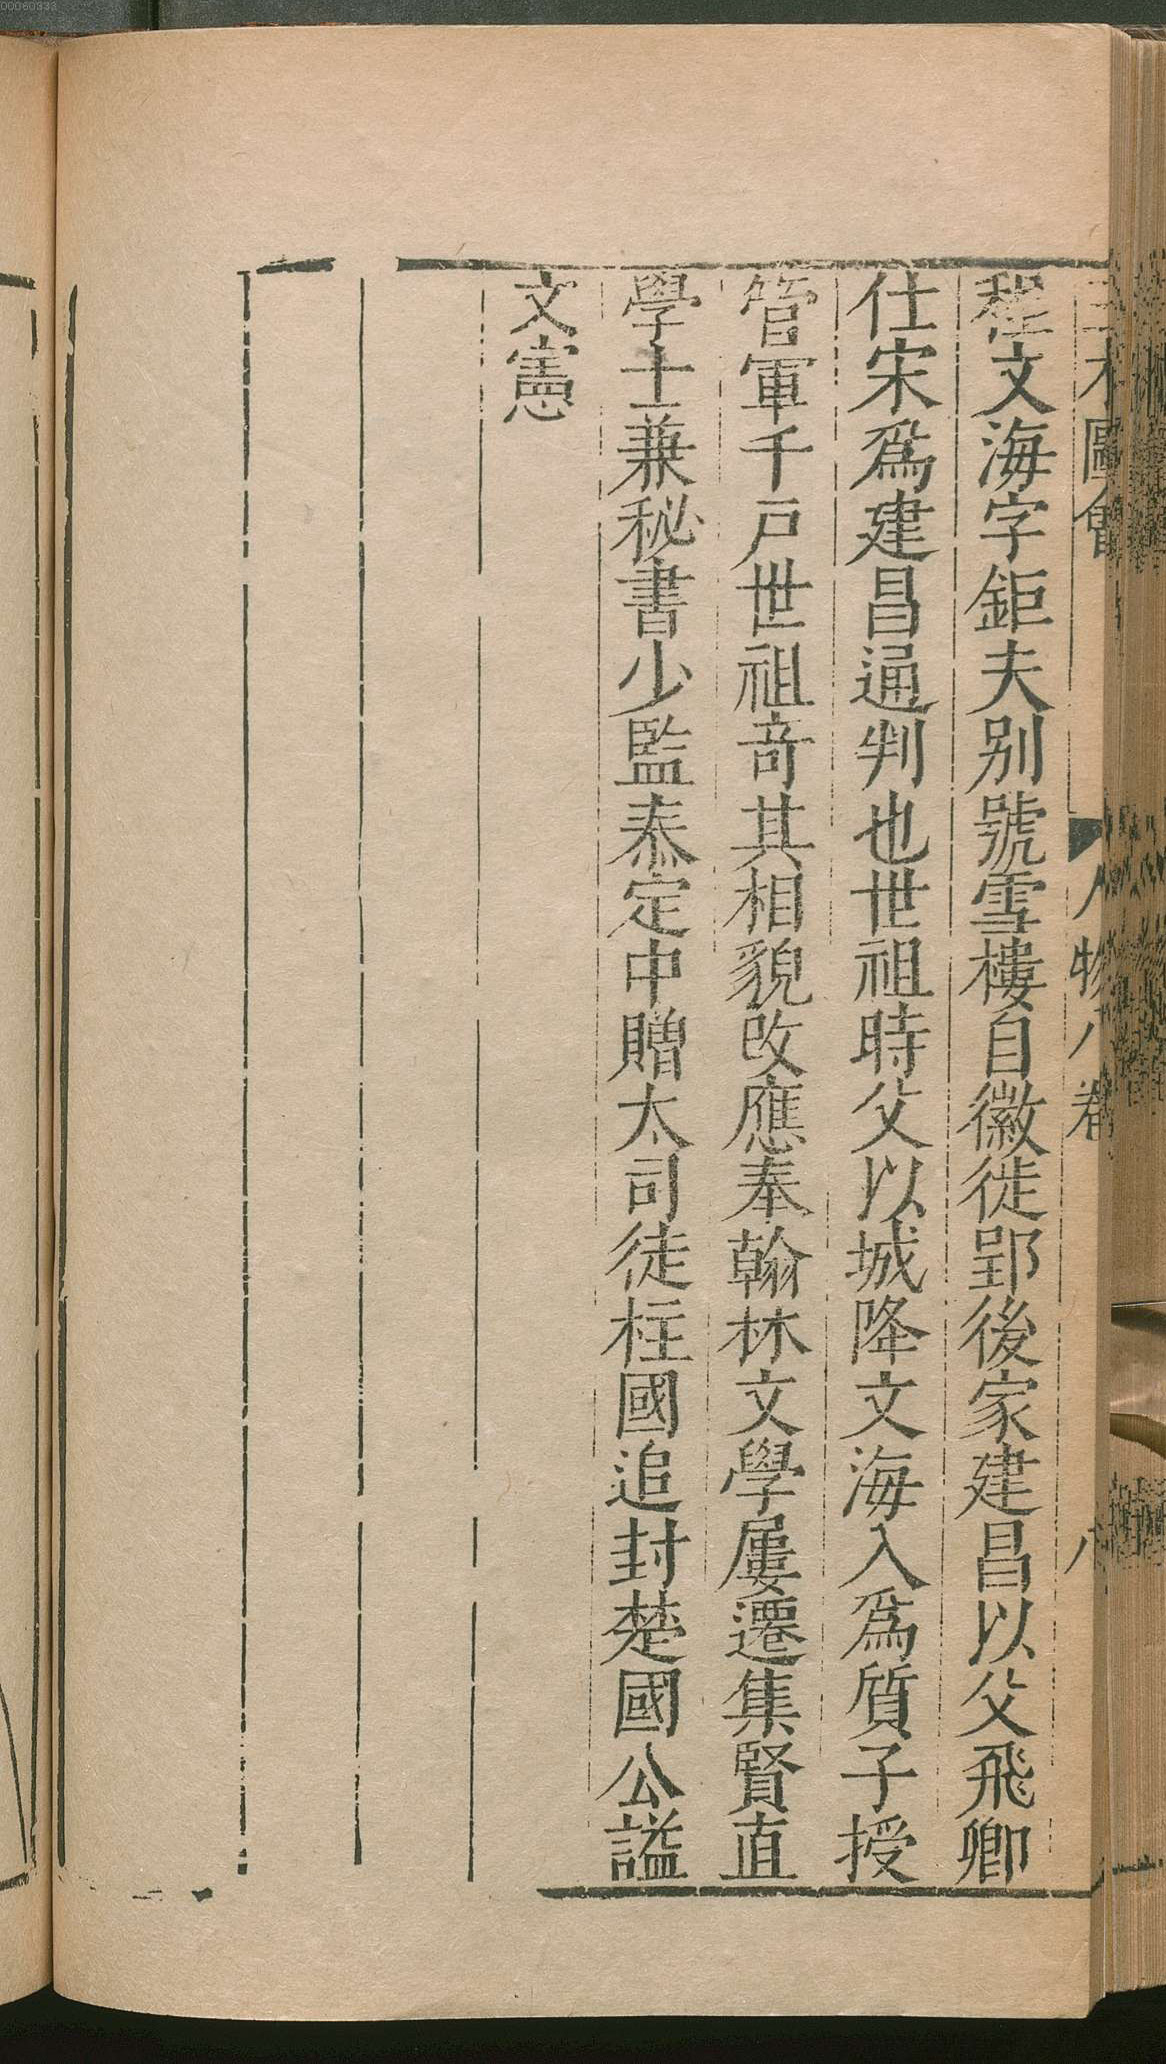 三才圖會 人物八卷 六
程文海字鉅夫别號雪樓自徽徙郢後家建昌以父飛卿
仕宋爲建昌通判也世祖時父以城降文海入爲質子授
管軍千戸世祖奇其相貌改應奉翰林文學屢遷集賢直
學士兼秘書少監泰定中贈太司徒柱國追封楚國公謚
文憲
00060333